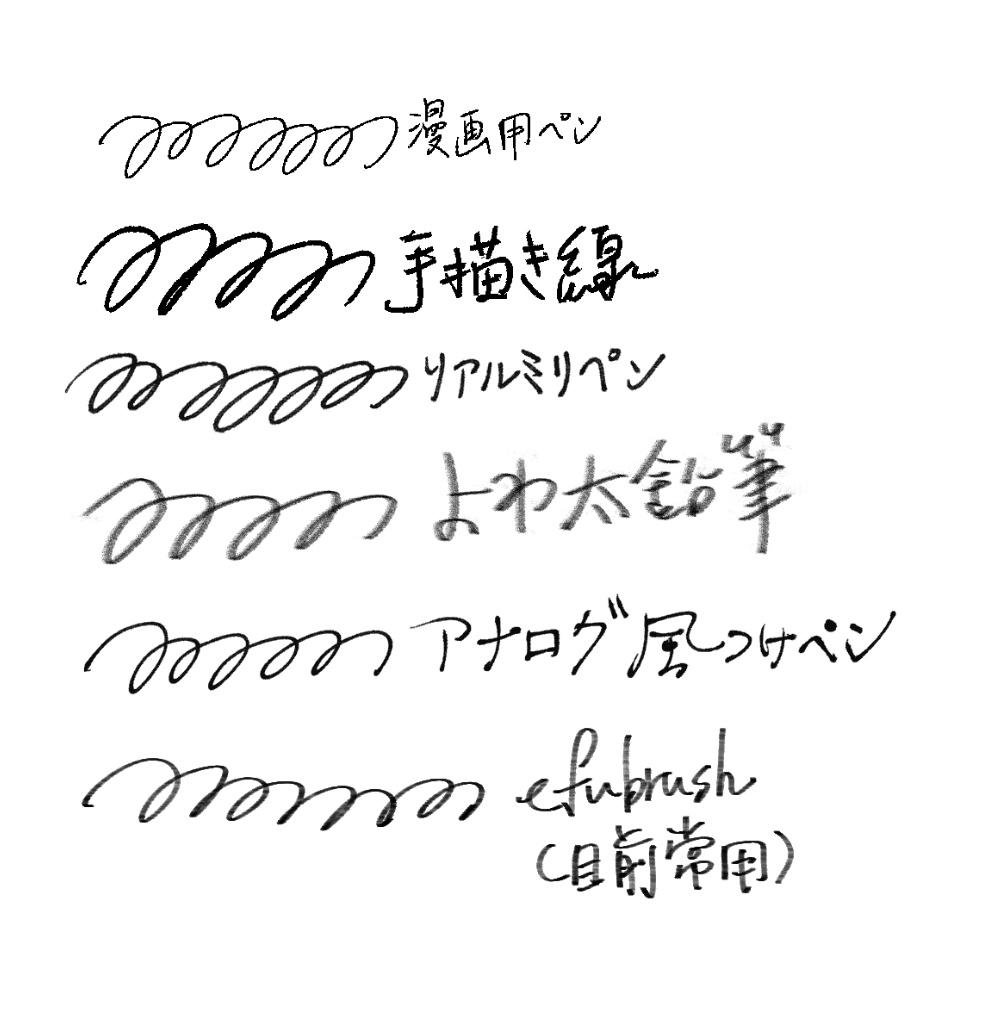 漫画用ペン
手描き線
リアルミリペン
よわ太鉛筆
アナログ風つけペン
efubrush
(目前常用)